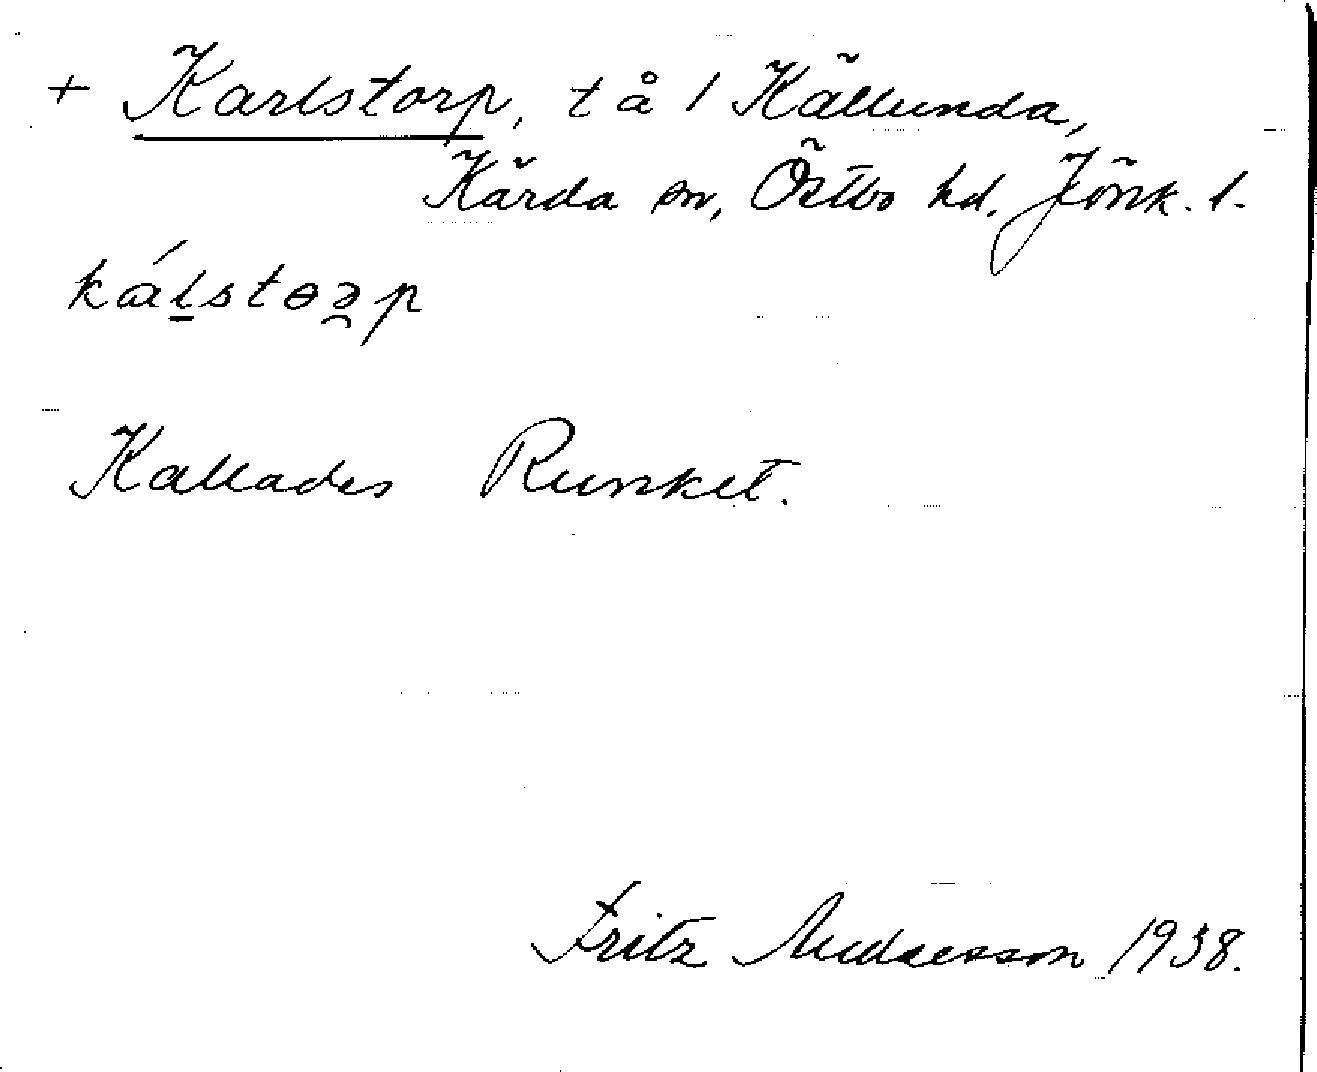 + Karlstorp, t å / Källunda,
Kärda sn, Östbo hd. Jönk. l.
Kallades Runket.
Fritz Andersson 1938.